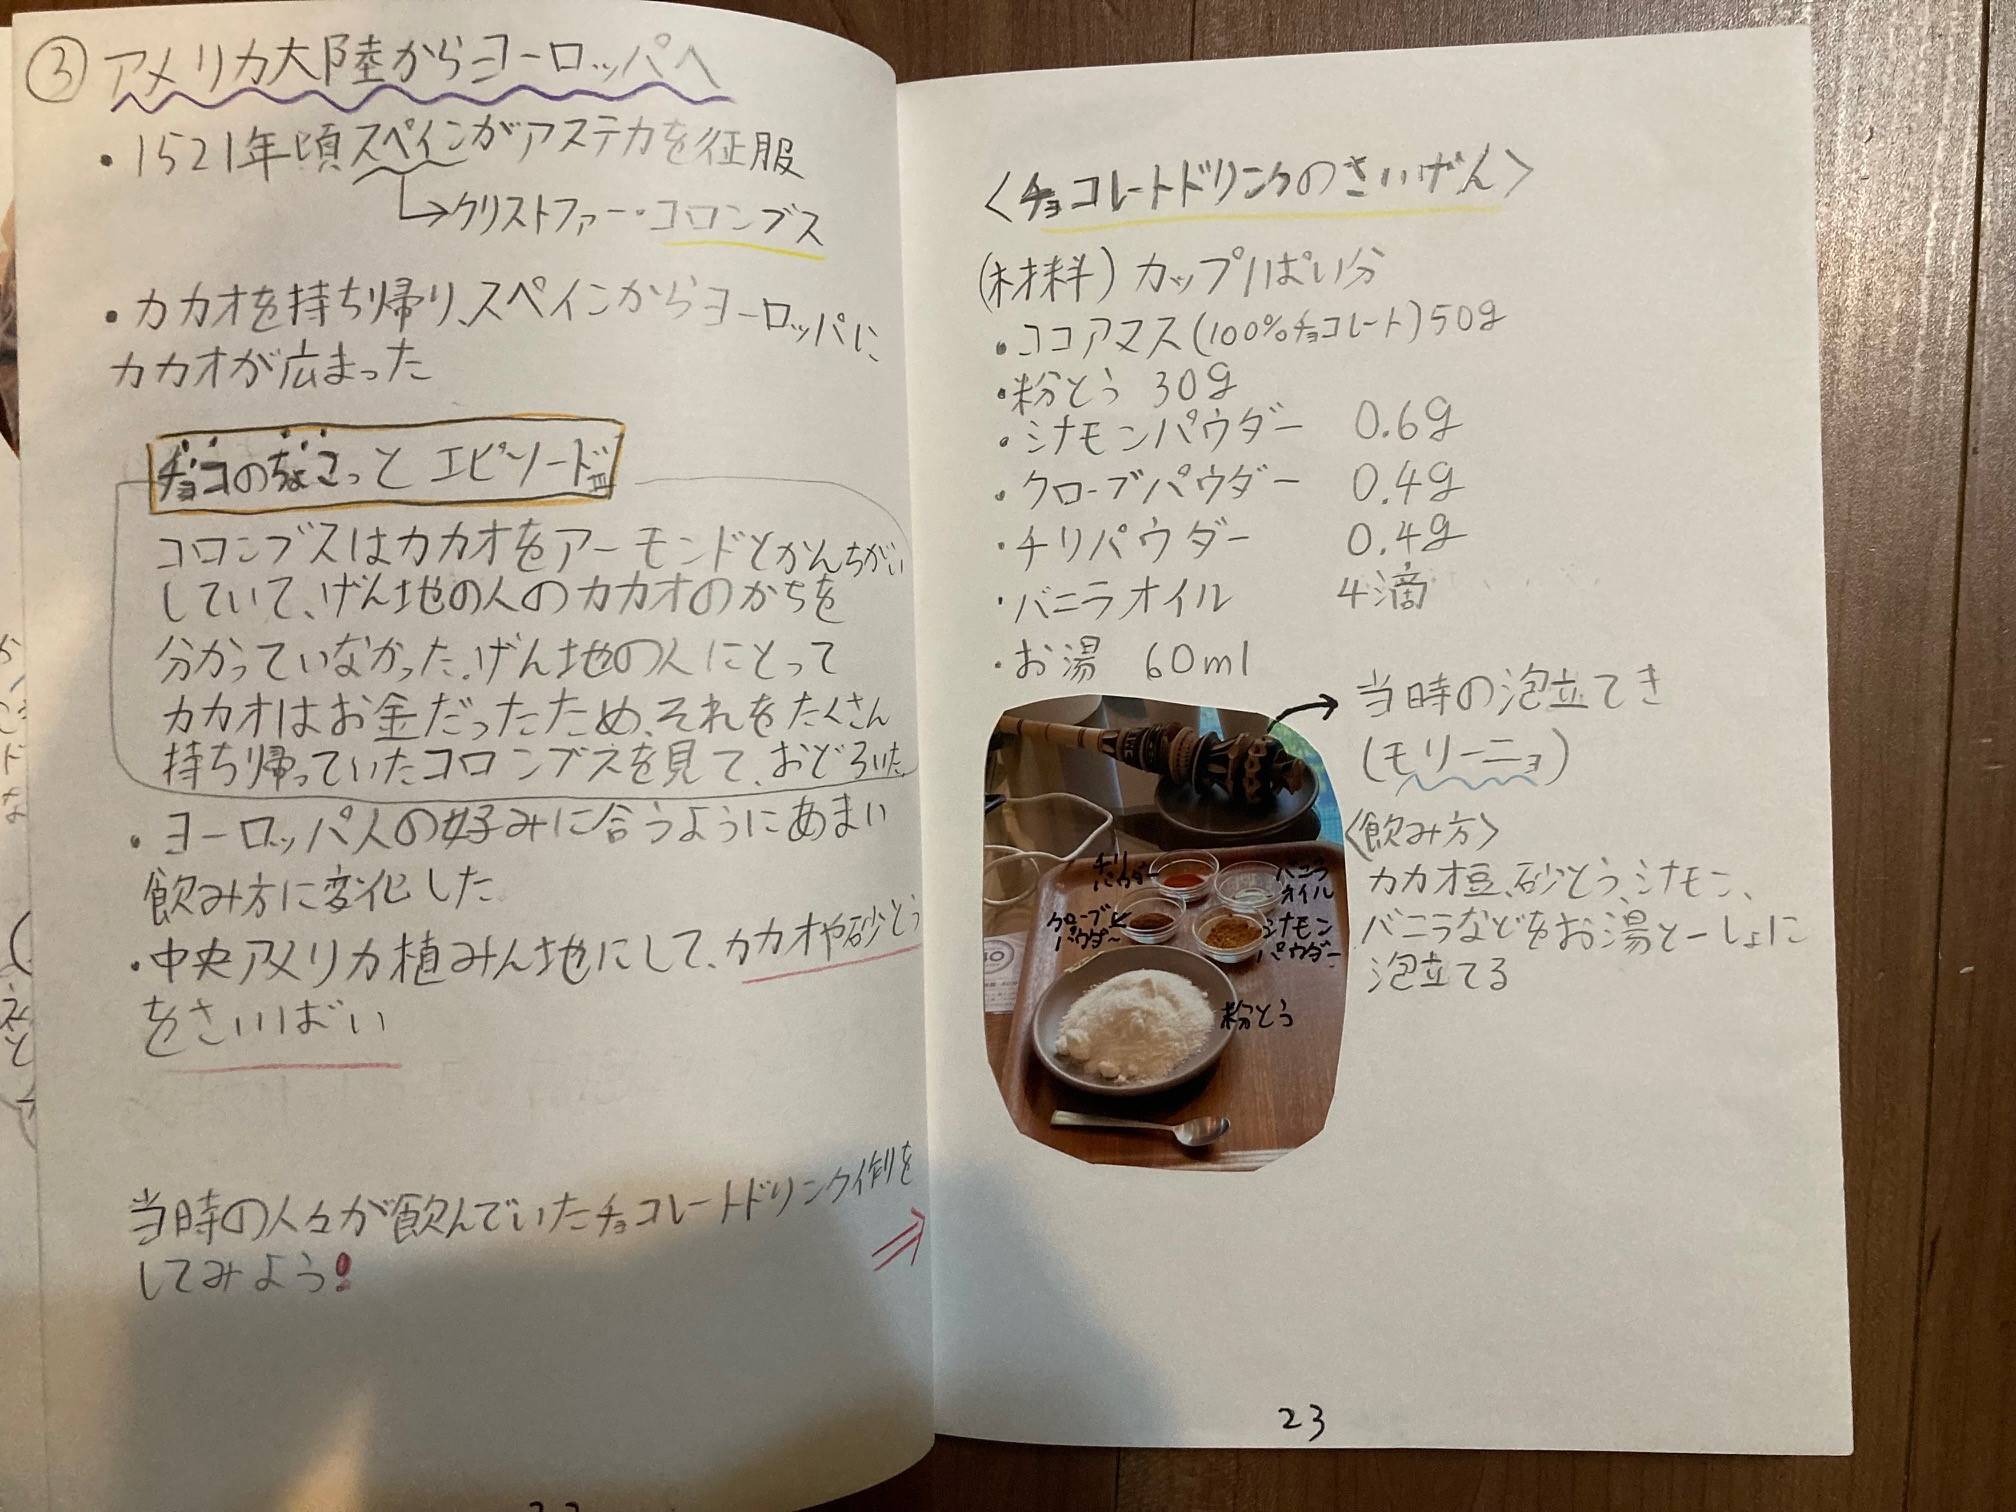 ③ アメリカ大陸からヨーロッパへ
・1521年頃スペインがアステカを征服
→クリストファー・コロンブス
・カカオを持ち帰り、スペインからヨーロッパに
カカオが広まった
チョコのちょこっと エピソードⅢ
コロンブスはカカオをアーモンドとかんちがい
していて、げん地の人のカカオのかちを
分かっていなかった。げん地の人にとって
カカオはお金だったため、それをたくさん
持ち帰っていたコロンブスを見て、おどろいた
・ヨーロッパ人の好みに合うようにあまい
飲み方に変化した
・中央アメリカ植みん地にして、カカオや砂とう
をさいばい
当時の人々が飲んでいたチョコレートドリンク作りを
してみよう!
⇒
〈チョコレートドリンクのさいげん〉
(材料) カップ1ぱい分
・ココアマス(100%チョコレート)50g
・粉とう 30g
・シナモンパウダー 0.6g
・クローブパウダー 0.4g
・チリパウダー 0.4g
・バニラオイル 4滴
・お湯 60ml
→当時の泡立てき
(モリーニョ)
チリ
パウダー
バニラ
オイル
クローブ
パウダー
シナモン
パウダー
粉とう
〈飲み方〉
カカオ豆、砂とう、シナモン、
バニラなどをお湯と一しょに
泡立てる
23